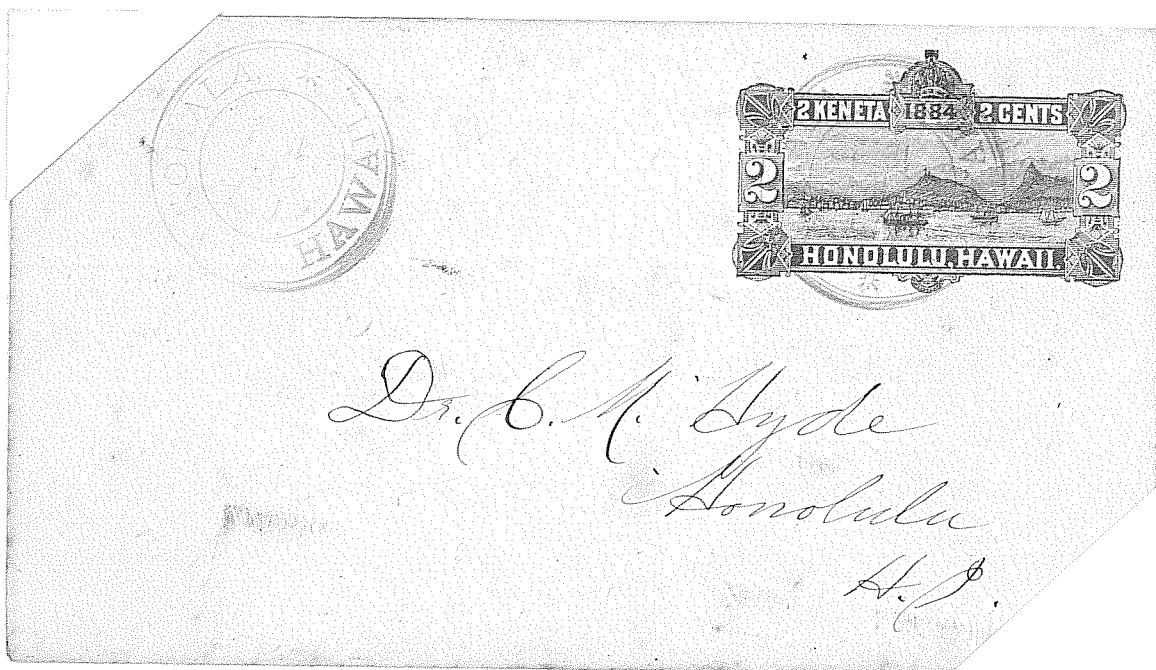 HAWAII
2 KENETA 1884 2 CENTS
2 2
HONOLULU, HAWAII.
Dr. C. M. Hyde
Honolulu
H. I.